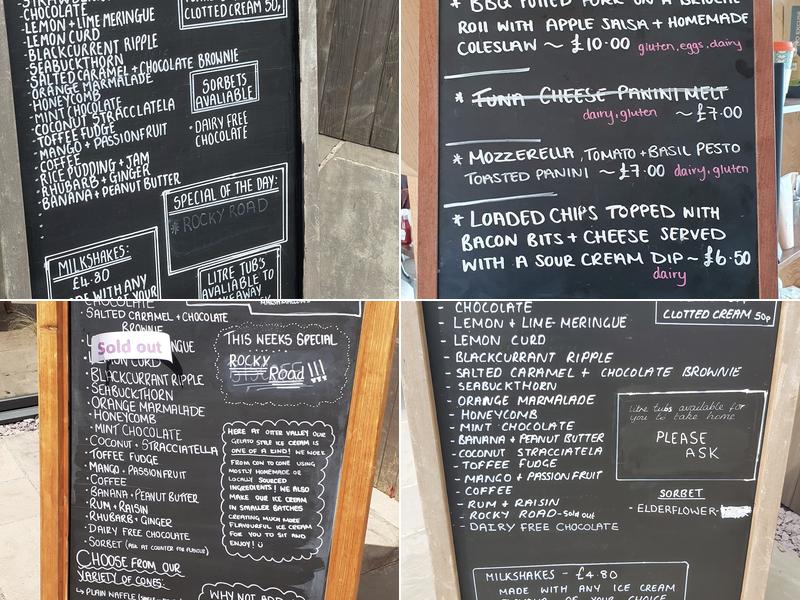 CHOCOLATE
LEMON + LIME MERINGUE
LEMON CURD
BLACKCURRANT RIPPLE
SEABUCKTHORN
SALTED CARAMEL + CHOCOLATE BROWNIE
ORANGE MARMALADE
HONEYCOMB
MINT CHOCOLATE
COCONUT STRACCIATELA
TOFFEE FUDGE
MANGO + PASSIONFRUIT
COFFEE
RICE PUDDING + JAM
RHUBARB + GINGER
BANANA + PEANUT BUTTER
CLOTTED CREAM 50p
SORBETS
AVALIABLE
• DAIRY FREE
CHOCOLATE
SPECIAL OF THE DAY:
* ROCKY ROAD
MILKSHAKES:
£4.80
MADE WITH ANY
LITRE TUB'S
AVALIABLE TO
TAKEAWAY
* BBQ PULLED PORK ON A BRIOCHE
ROLL WITH APPLE SALSA + HOMEMADE
COLESLAW ~ £10.00 gluten, eggs, dairy
* TUNA CHEESE PANINI MELT
dairy, gluten ~ £7.00
* MOZZERELLA, TOMATO + BASIL PESTO
TOASTED PANINI ~ £7.00 dairy, gluten
* LOADED CHIPS TOPPED WITH
BACON BITS + CHEESE SERVED
WITH A SOUR CREAM DIP ~ £6.50
dairy
CHOCOLATE
SALTED CARAMEL + CHOCOLATE
BROWNIE
Sold out
LEMON CURD
BLACKCURRANT RIPPLE
SEABUCKTHORN
ORANGE MARMALADE
HONEYCOMB
MINT CHOCOLATE
COCONUT + STRACCIATELLA
TOFFEE FUDGE
MANGO + PASSIONFRUIT
COFFEE
BANANA + PEANUT BUTTER
RUM + RAISIN
RHUBARB + GINGER
DAIRY FREE CHOCOLATE
SORBET (ASK AT COUNTER FOR FLAVOUR)
CHOOSE FROM OUR
VARIETY OF CONES:
PLAIN WAFFLE
THIS WEEKS SPECIAL
ROCKY
Road !!!
HERE AT OTTER VALLEY OUR
GELATO STYLE ICE CREAM IS
ONE OF A KIND! WE WORK
FROM COW TO CONE USING
MOSTLY HOMEMADE OR
LOCALLY SOURCED
INGREDIENTS! WE ALSO
MAKE OUR ICE CREAM
IN SMALLER BATCHES
CREATING MUCH MORE
FLAVOURFUL ICE CREAM
FOR YOU TO SIT AND
ENJOY! ☺
WHY NOT ADD
CHOCOLATE
- LEMON + LIME MERINGUE
- LEMON CURD
- BLACKCURRANT RIPPLE
- SALTED CARAMEL + CHOCOLATE BROWNIE
- SEABUCKTHORN
- ORANGE MARMALADE
- HONEYCOMB
- MINT CHOCOLATE
- BANANA + PEANUT BUTTER
- COCONUT STRACCIATELA
- TOFFEE FUDGE
- MANGO + PASSIONFRUIT
- COFFEE
- RUM + RAISIN
- ROCKY ROAD - Sold out
- DAIRY FREE CHOCOLATE
CLOTTED CREAM 50p
litre tubs available for
you to take home
PLEASE
ASK
SORBET
- ELDERFLOWER -
MILKSHAKES - £4.80
MADE WITH ANY ICE CREAM
FLAVOUR OF YOUR CHOICE